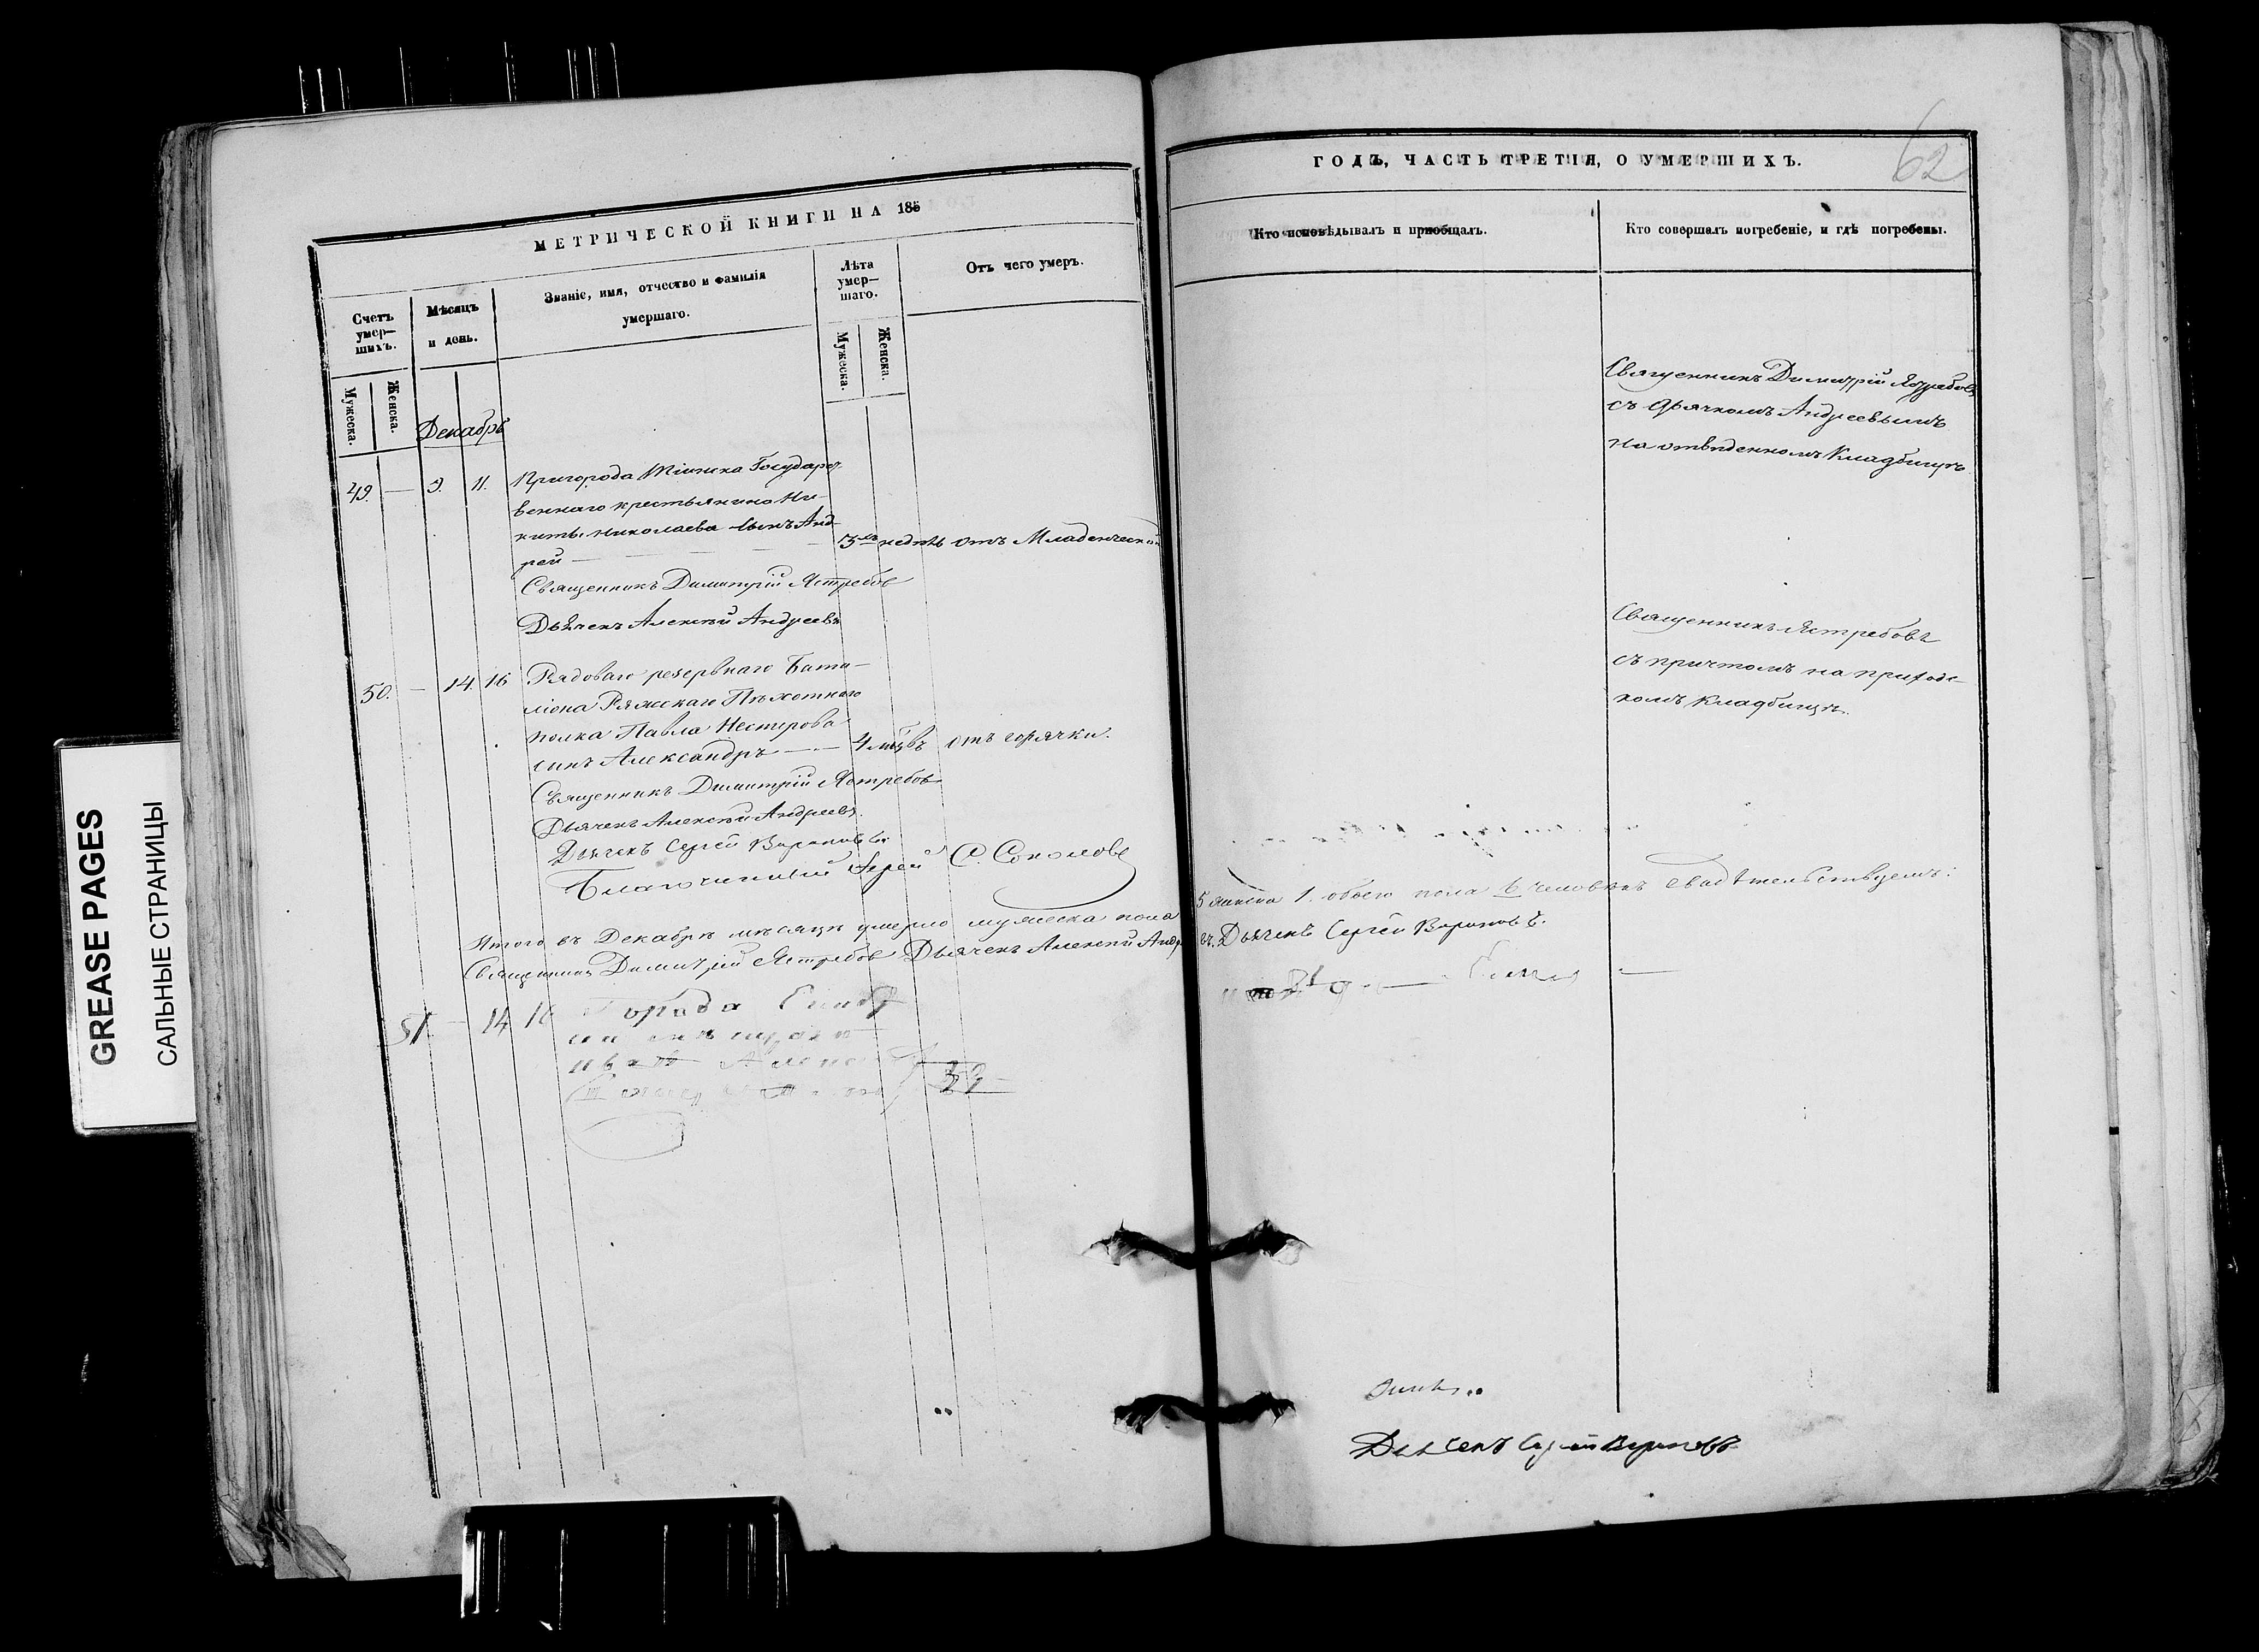 МЕТРИЧЕСКОЙ КНИГИ НА 185
Счетъ умер-шихъ.
Мужеска.
Женска.
Мѣсяцъ и день.
Званіе, имя, отчество и фамилія умершаго.
Лѣта умер-шаго.
Мужеска.
Женска.
Отъ чего умеръ.
Декабрь
49. — 9. 11. Пригорода Тіинска Государст-
веннаго крестьянина Ни-
киты Николаева сынъ Анд-
рей — 3хъ недѣль отъ Младенческой
Священникъ Димитрій Ястребовъ
Дьячекъ Алексѣй Андреевъ
50. — 14. 16 Рядоваго резервнаго Бата-
ліона Ряжскаго Пѣхотнаго
полка Павла Нестерова
сынъ Александръ — 4 мѣсѣ отъ горячки.
Священникъ Димитрій Ястребовъ
Дьячекъ Алексѣй Андреевъ.
Дьячекъ Сергей Вороновъ.
Благочинный Іерей С. Соколовъ
Итого въ Декабрѣ мѣсяцѣ умерло мужеска пола
Священникъ Димитрій Ястребовъ Дьячекъ Алексѣй Андре
51. — 14 16 Города
ГОДЪ, ЧАСТЬ ТРЕТІЯ, О УМЕРШИХЪ.
62
Кто исповѣдывалъ и пріобщалъ.
Кто совершалъ погребеніе, и гдѣ погребены.
Священникъ Димитрій Ястребовъ
съ дьячкомъ Андреевымъ
на отведенномъ Кладбищѣ
Священникъ Ястребовъ
съ причтомъ на приход-
комъ кладбищѣ.
5 женска 1. обоего пола 6 человѣкъ свидѣтельствуемъ:
въ. Дьячекъ Сергей Вороновъ.
Дьячекъ Сергей Вороновъ
GREASE PAGES
САЛЬНЫЕ СТРАНИЦЫ